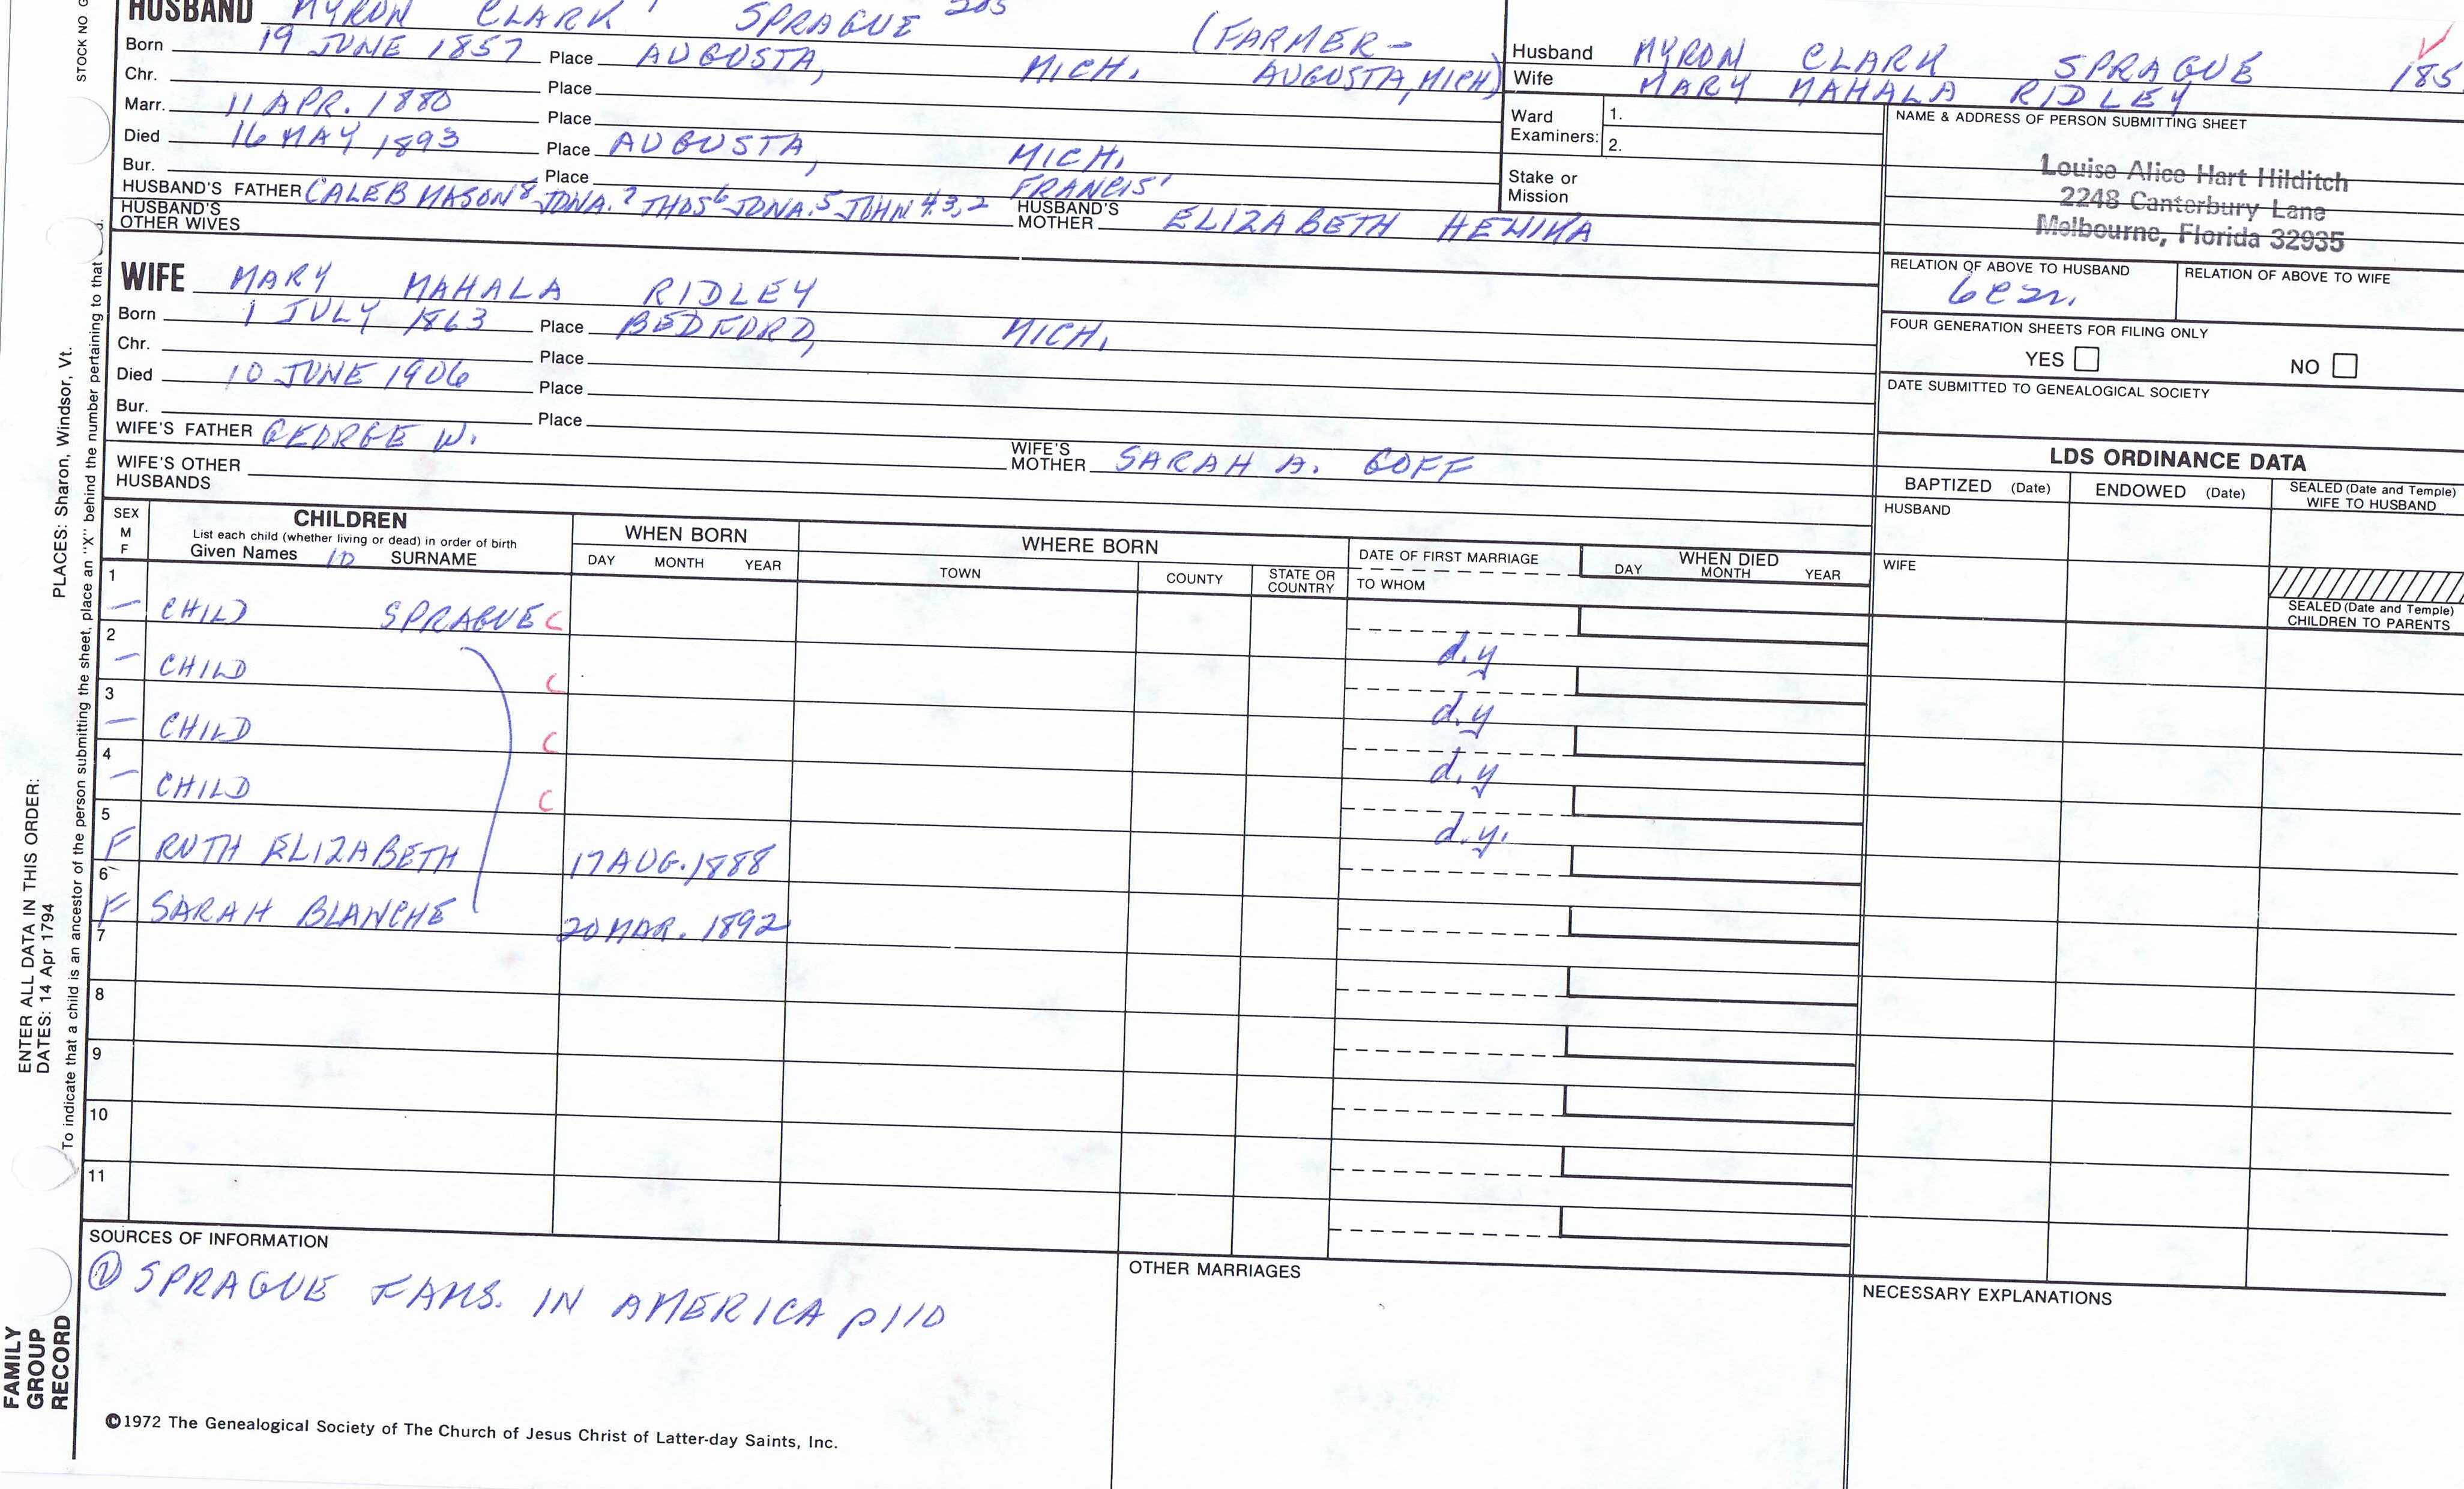 HUSBAND MYRON CLARK SPRAGUE
(FARMER-
Born 19 JUNE 1857 Place AUGUSTA, MICH. AUGUSTA, MICH)
Chr. Place
Marr. 11 APR. 1880 Place
Died 16 MAY 1893 Place AUGUSTA, MICH.
Bur. Place
HUSBAND'S FATHER CALEB MASON 8 JONA. 7 THOS 6 JONA. 5 JOHN 4,3,2 FRANCIS'
HUSBAND'S MOTHER ELIZABETH
HUSBAND'S OTHER WIVES
WIFE MARY MAHALA RIDLEY
Born 1 JULY 1863 Place BEDFORD, MICH.
Chr. Place
Died 10 JUNE 1906 Place
Bur. Place
WIFE'S FATHER GEORGE W.
WIFE'S MOTHER SARAH A. GOFF
WIFE'S OTHER HUSBANDS
Husband MYRON CLARK SPRAGUE 185
Wife MARY MAHALA RIDLEY
Ward Examiners: 1.
2.
Stake or Mission
NAME & ADDRESS OF PERSON SUBMITTING SHEET
Louise Alice Hart Hilditch
2248 Canterbury Lane
Melbourne, Florida 32935
RELATION OF ABOVE TO HUSBAND
RELATION OF ABOVE TO WIFE
FOUR GENERATION SHEETS FOR FILING ONLY
YES NO
DATE SUBMITTED TO GENEALOGICAL SOCIETY
LDS ORDINANCE DATA
BAPTIZED (Date) ENDOWED (Date) SEALED (Date and Temple) WIFE TO HUSBAND
HUSBAND
WIFE
SEALED (Date and Temple) CHILDREN TO PARENTS
SEX M F
CHILDREN
List each child (whether living or dead) in order of birth
Given Names 10 SURNAME
WHEN BORN
DAY MONTH YEAR
WHERE BORN
TOWN COUNTY STATE OR COUNTRY
DATE OF FIRST MARRIAGE
TO WHOM
WHEN DIED
DAY MONTH YEAR
1 – CHILD SPRAGUE C d.y
2 – CHILD C d.y
3 – CHILD C d.y
4 – CHILD C d.y.
5 F RUTH ELIZABETH 17 AUG. 1888
6 F SARAH BLANCHE 20 MAR. 1892
7
8
9
10
11
SOURCES OF INFORMATION
① SPRAGUE FAMS. IN AMERICA p110
OTHER MARRIAGES
NECESSARY EXPLANATIONS
©1972 The Genealogical Society of The Church of Jesus Christ of Latter-day Saints, Inc.
STOCK NO G
PLACES: Sharon, Windsor, Vt.
To indicate that a child is an ancestor of the person submitting the sheet, place an "X" behind the number pertaining to that
ENTER ALL DATA IN THIS ORDER:
DATES: 14 Apr 1794
FAMILY
GROUP
RECORD